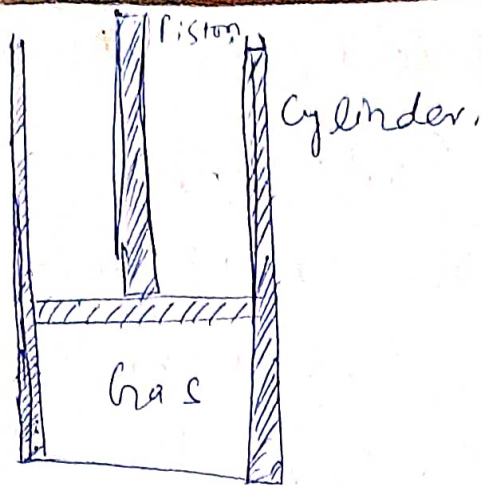 Piston
Cylinder.
Gas